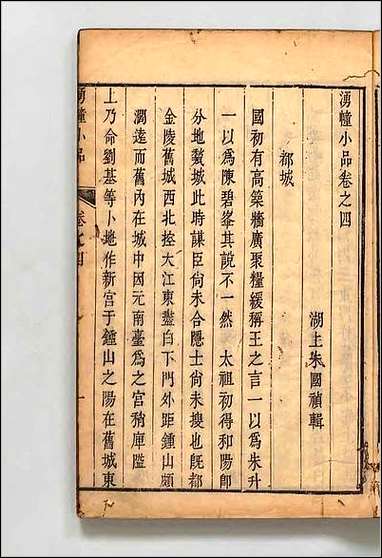 湧幢小品卷之四
湖上朱國禎輯
都城
國初有高築牆廣聚糧緩稱王之言一以爲朱升
一以爲陳碧峯其說不一然　太祖初得和陽卽
分地甃城此時謀臣尙未合隱士尙未搜也旣都
金陵舊城西北控大江東盡白下門外距鍾山頗
濶遠而舊內在城中因元南臺爲之宮稍庳隘
上乃命劉基等卜地作新宮于鍾山之陽在舊城東
湧幢小品
卷之四
一